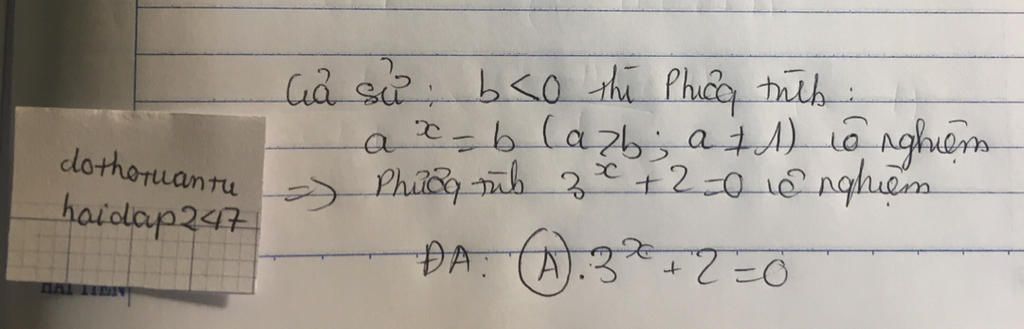 Giả sử: b<0 thì Phương trình:
a^x = b (a>b; a ≠ 1) vô nghiệm
=> Phương trình 3^x + 2 = 0 vô nghiệm
ĐA: (A). 3^x + 2 = 0
dothotuantu
hoidap247